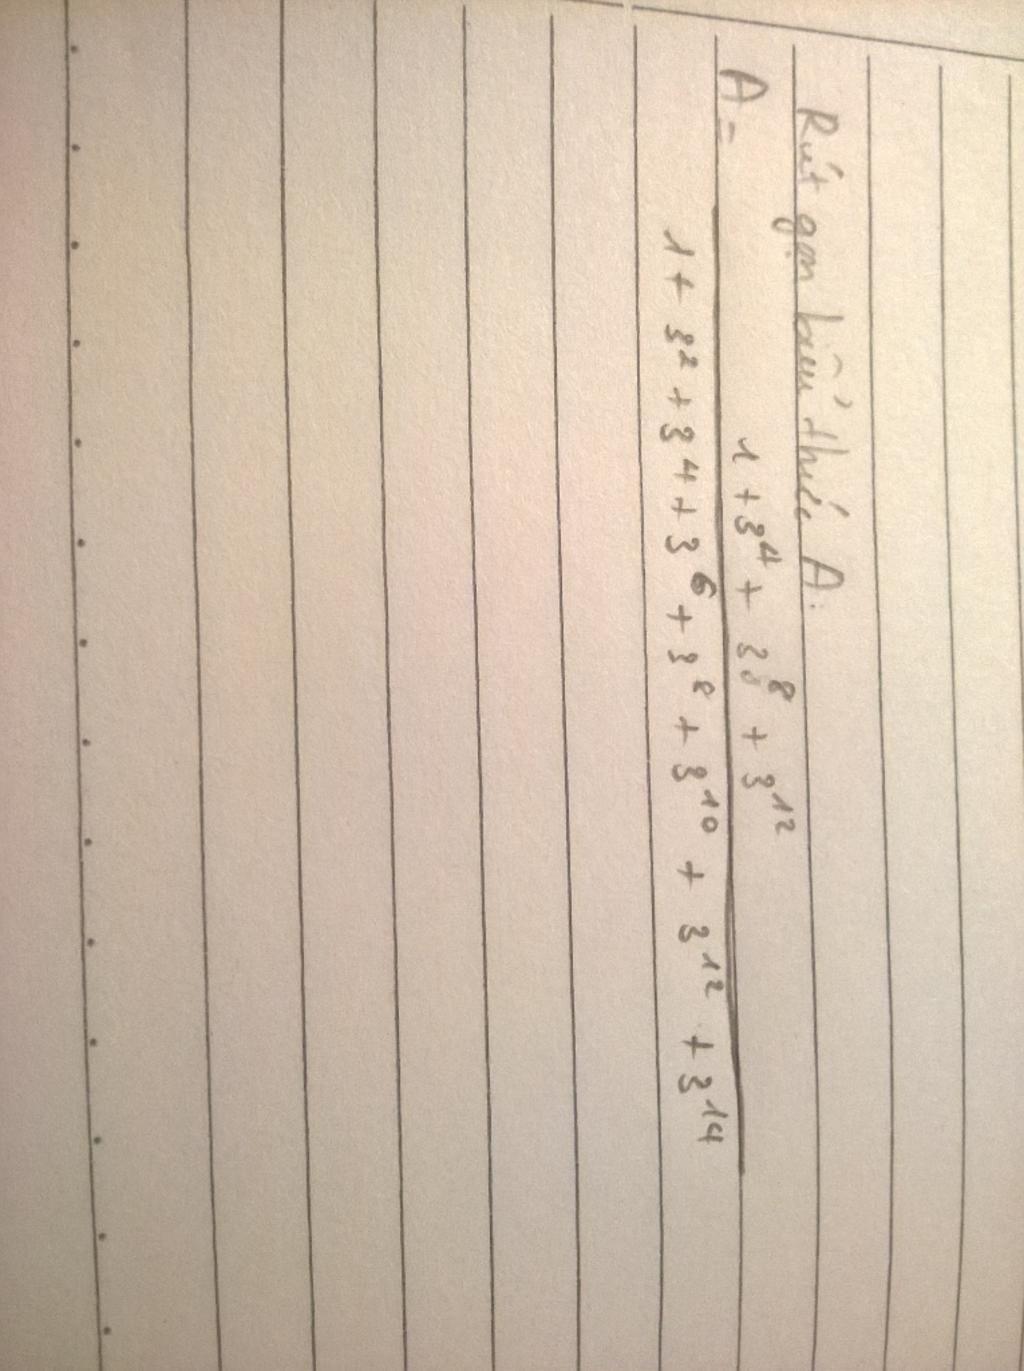 Rút gọn biểu thức A:
1 + 3⁴ + 3⁸ + 3¹²
A =
1 + 3² + 3⁴ + 3⁶ + 3⁸ + 3¹⁰ + 3¹² + 3¹⁴